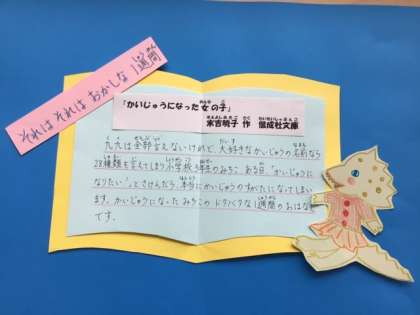 それはそれは おかしな 1週間
「かいじゅうになった女の子」
末吉暁子 作 偕成社文庫
九九は全部言えないけれど、大好きなかいじゅうの名前なら
28種類も言えてしまう小学校3年生のみちこ。ある日、“かいじゅうに
なりたい”とさけんだら、本当にかいじゅうのすがたになってしまい
ます。かいじゅうになったみちこのドタバタな1週間のおはなし
です。